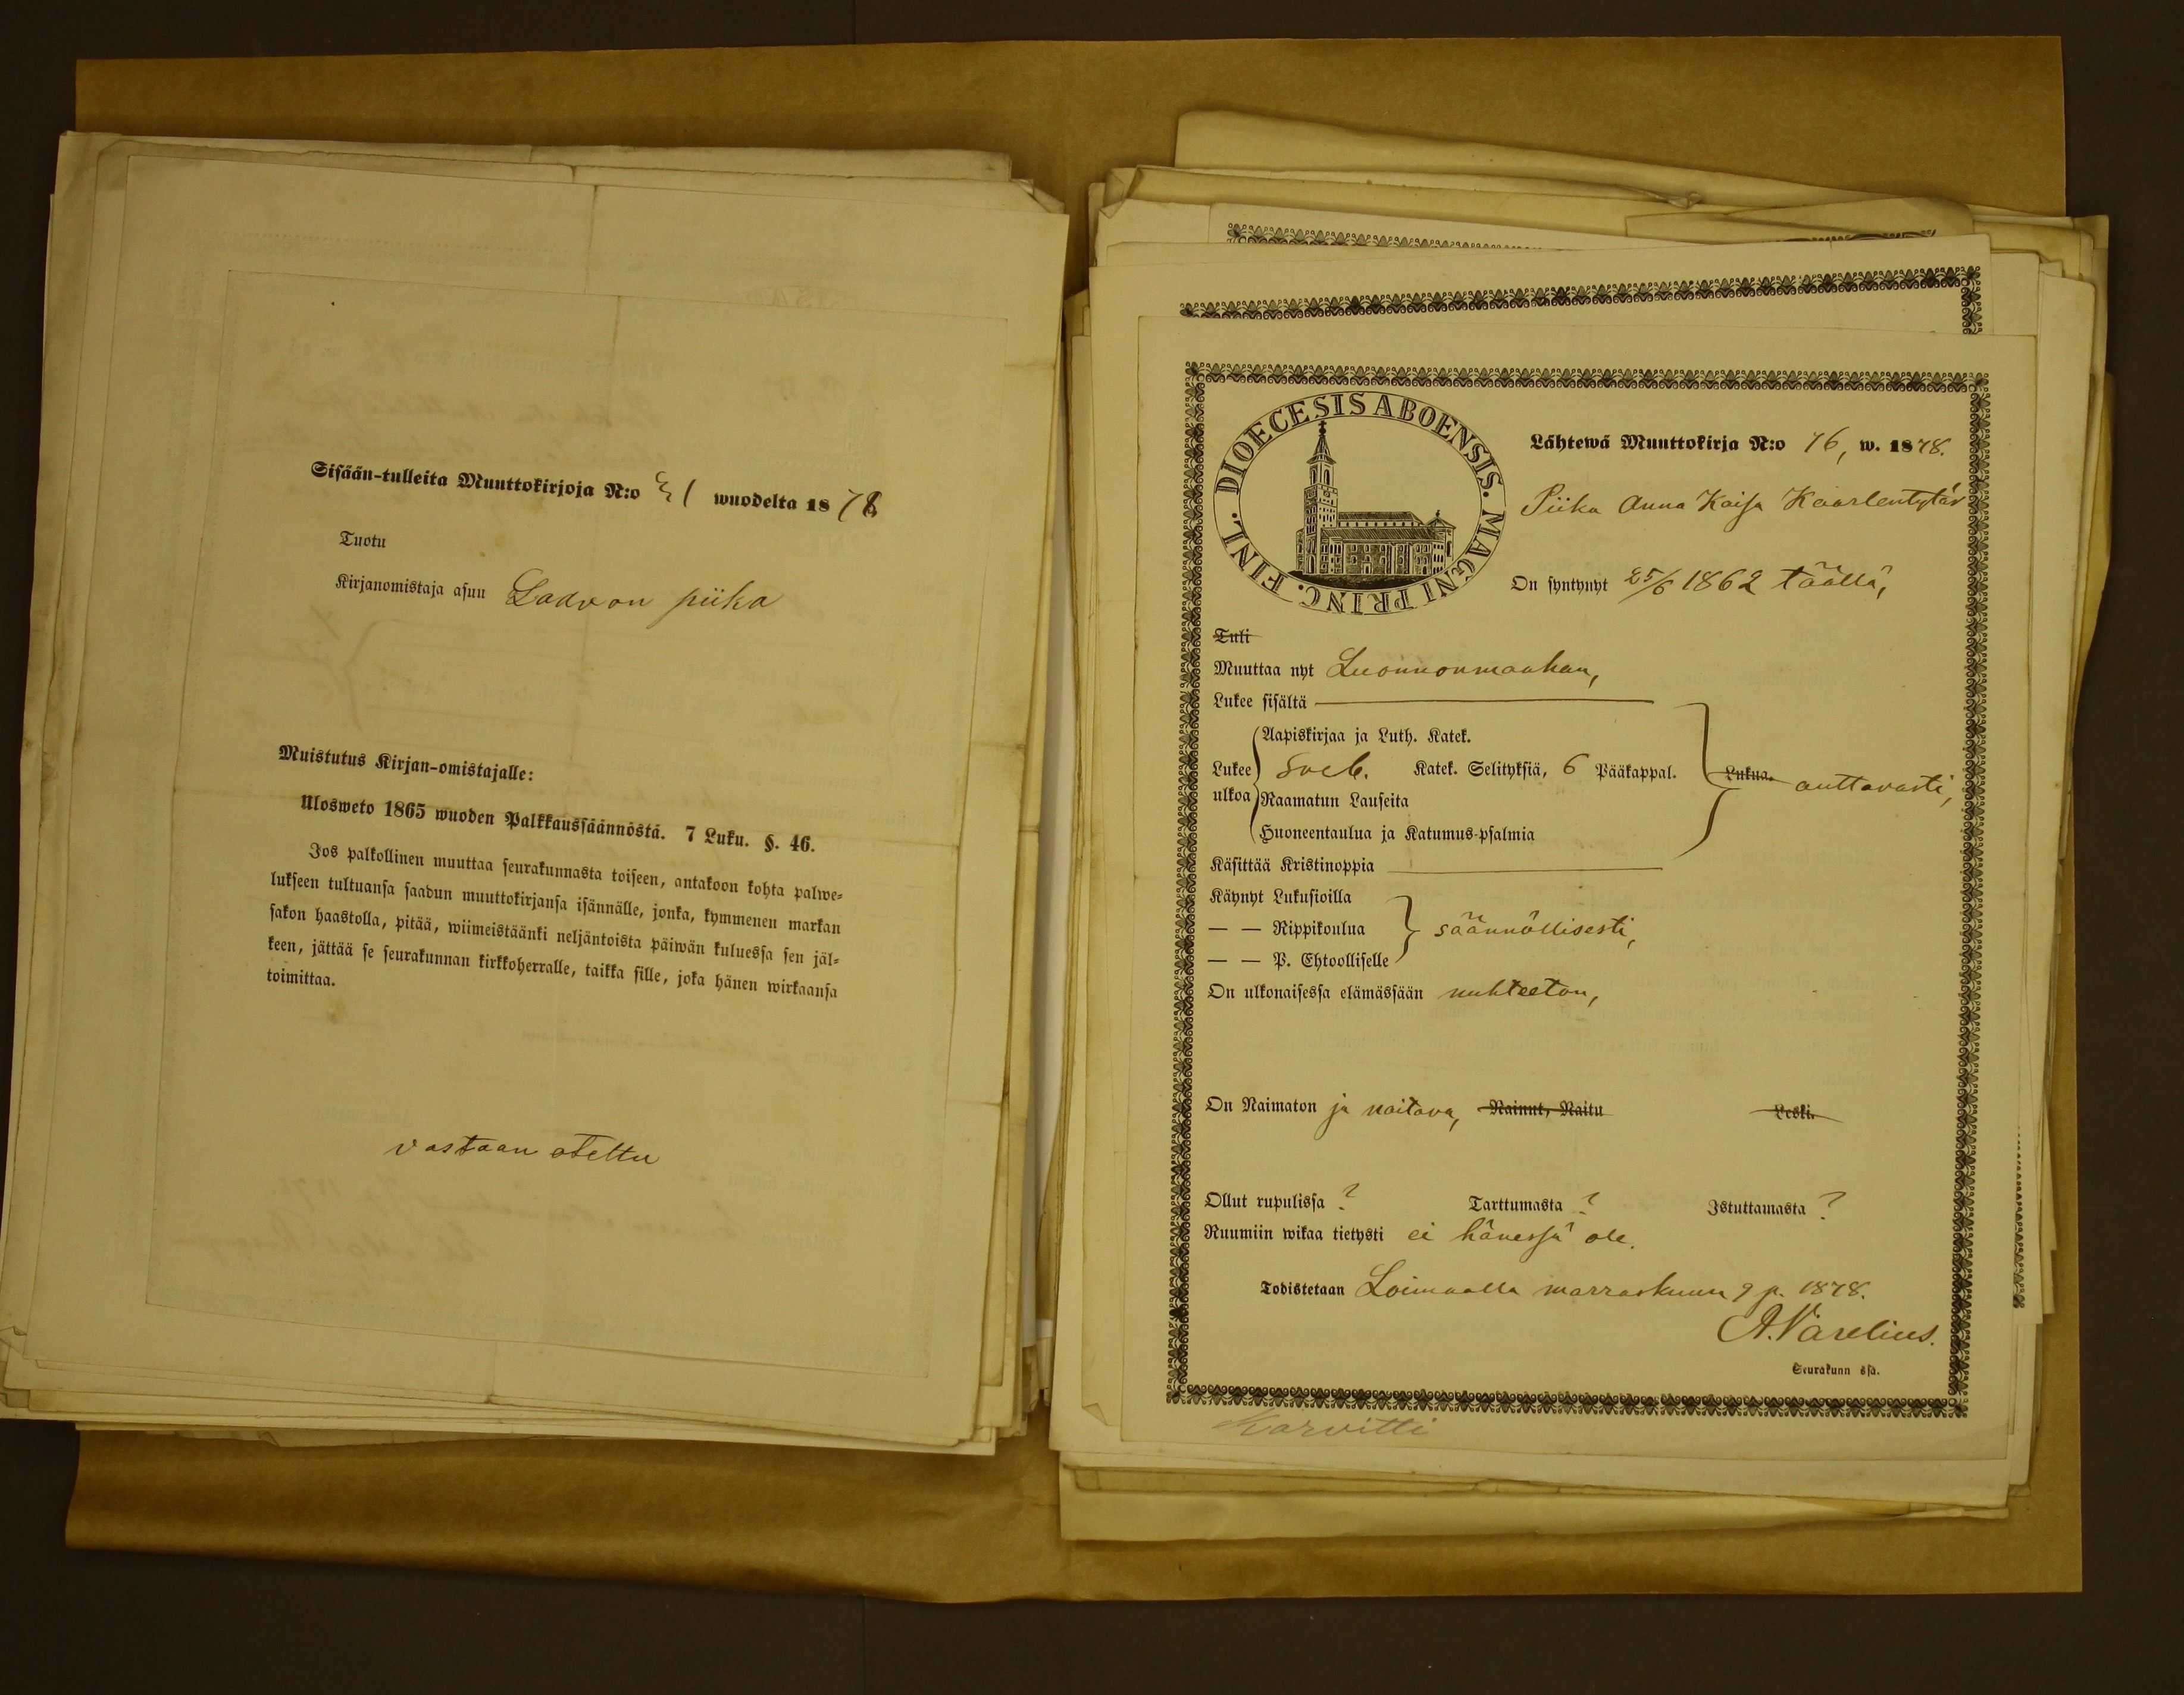 Sisään-tulleita Muuttokirjoja N:o 31 wuodelta 1878
Tuotu
Kirjanomistaja asuu Laavon piika
Muistutus Kirjan-omistajalle:
Ulosweto 1865 wuoden Palkkaussäännöstä. 7 Luku. §. 46.
Jos palkollinen muuttaa seurakunnasta toiseen, antakoon kohta palwe=
lukseen tultuansa saadun muuttokirjansa isännälle, jonka, kymmenen markan
sakon haastolla, pitää, wiimeistäänki neljäntoista päiwän kuluessa sen jäl=
keen, jättää se seurakunnan kirkkoherralle, taikka sille, joka hänen wirkaansa
toimittaa.
vastaan otettu
DIOECESIS ABOENSIS. MAGNI PRINC. FINL.
Lähtewä Muuttokirja N:o 76, w. 1878.
Piika Anna Kaisa Kaarlentytär
On syntynyt 25/6 1862 täällä,
Tuli
Muuttaa nyt Luonnonmaahan,
Lukee sisältä
Aapiskirjaa ja Luth. Katek.
Lukee ulkoa Sveb. Katek. Selityksiä, 6 Pääkappal. Lukua. auttavasti,
Raamatun Lauseita
Huoneentaulua ja Katumus-psalmia
Käsittää Kristinoppia
Käynyt Lukusioilla
— — Rippikoulua säännöllisesti,
— — P. Ehtoolliselle
On ulkonaisessa elämässään nuhteeton,
On Naimaton ja naitava, Nainut, Naitu Leski.
Ollut rupulissa ? Tarttumasta ? Istuttamasta ?
Ruumiin wikaa tietysti ei hänessä ole.
Todistetaan Loimaalla marraskuun 9 p. 1878.
A. Varelius.
Seurakunn ssa.
Karvitti